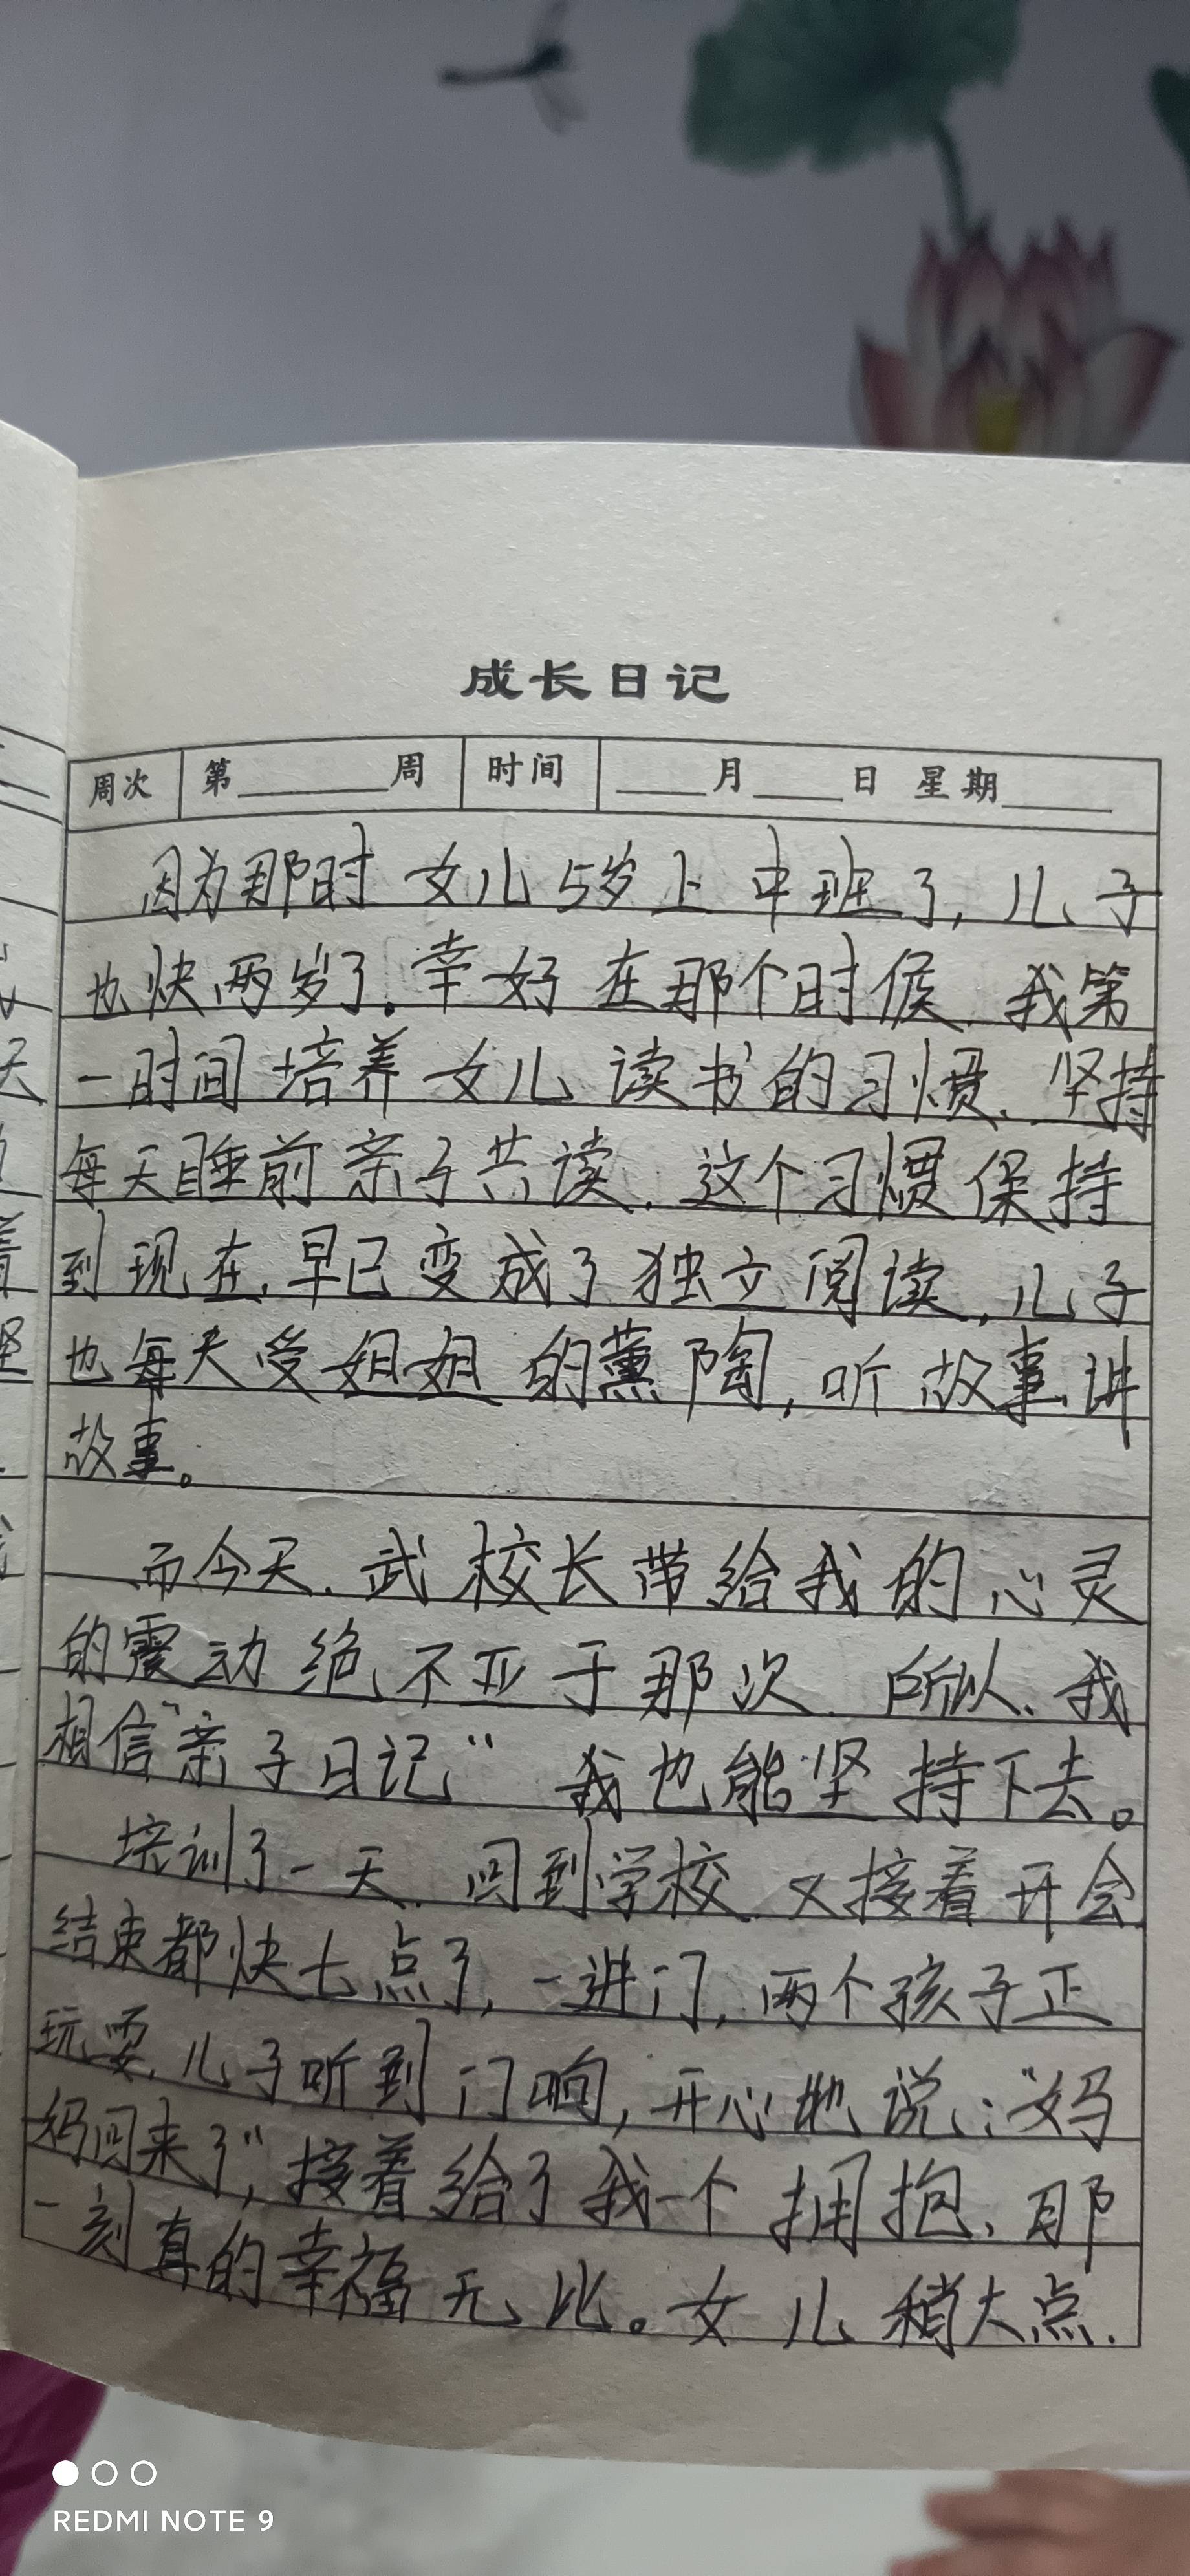 成长日记
周次 第______周 时间 ____月____日 星期_____
因为那时女儿5岁上中班了,儿子
也快两岁了.幸好在那个时侯.我第
一时间培养女儿读书的习惯.坚持
每天睡前亲子共读.这个习惯保持
到现在,早已变成了独立阅读,儿子
也每天受姐姐的薰陶,听故事、讲
故事。
而今天.武校长带给我的心灵
的震动绝不亚于那次.所以、我
相信“亲子日记”我也能坚持下去。
培训了一天.回到学校.又接着开会
结束都快七点了,一进门,两个孩子正
玩耍.儿子听到门响,开心地说:“妈
妈回来了”,接着给了我一个拥抱、那
一刻真的幸福无比。女儿稍大点.
天
着
坚
REDMI NOTE 9